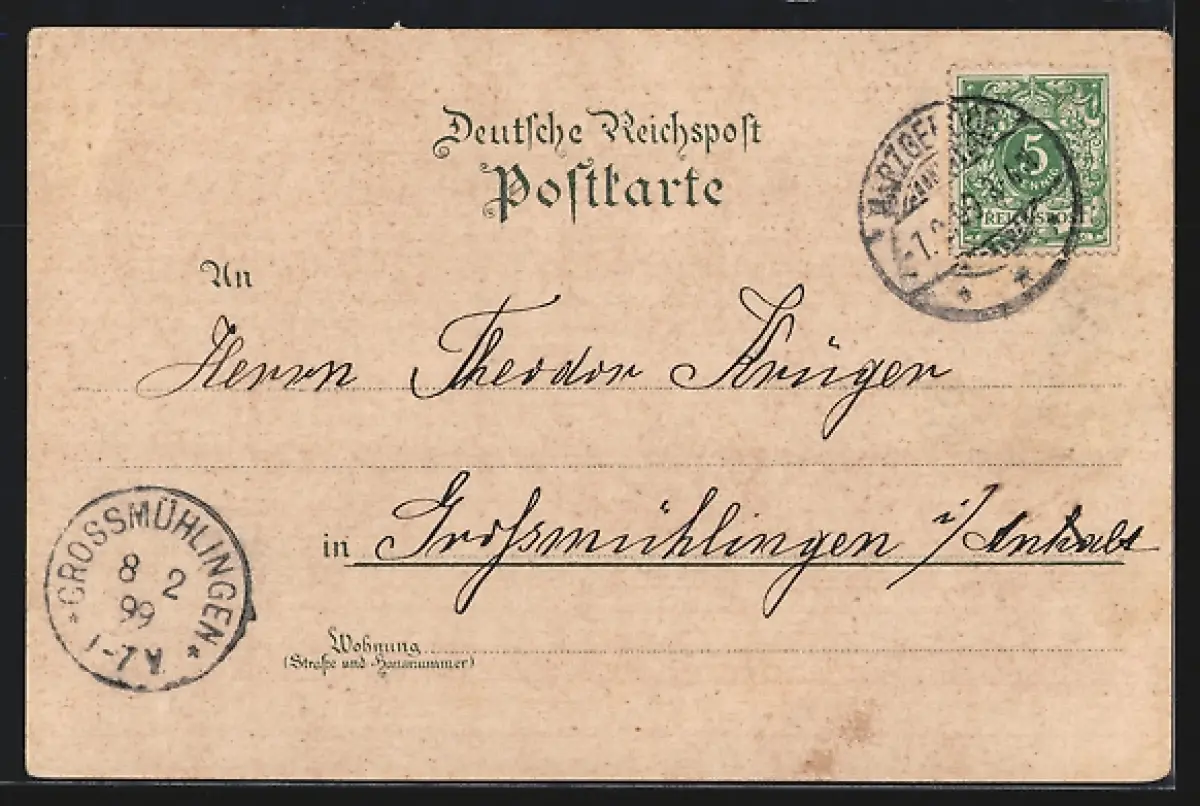 Deutsche Reichspost
Postkarte
5
PFENNIG
REICHSPOST
An
Herrn Theodor Krüger
in Großmühlingen i/Anhalt
GROSSMÜHLINGEN
8 2
99
1-7 N
Wohnung
(Straße und Hausnummer)